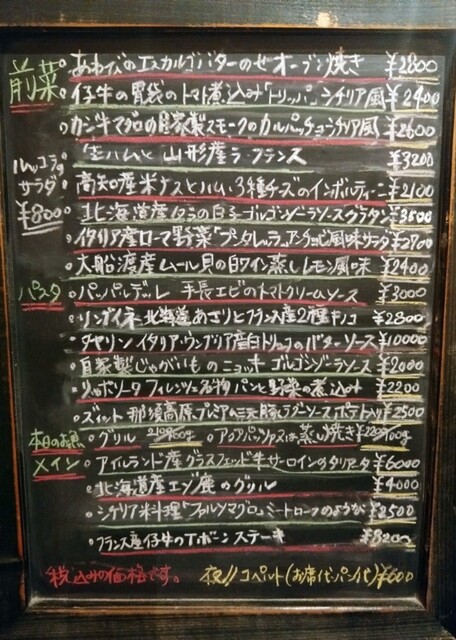 前菜
あわびのエスカルゴバターのせオーブン焼き ¥2800
仔牛の胃袋のトマト煮込み「トリッパ」シチリア風 ¥2400
カジキマグロの自家製スモークのカルパッチョシチリア風 ¥2600
生ハムと山形産ラ・フランス ¥3200
ルッコラの
サラダ
¥800
高知の産米ナスとハム、3種チーズのインボルティーニ ¥2100
北海道産タラの白子ゴルゴンゾーラソースグラタン ¥3500
イタリア産ローマ野菜「プンタレッラ」アンチョビ風味サラダ ¥2700
大船渡産ムール貝の白ワイン蒸しレモン風味 ¥2400
パスタ
パッパルデッレ 手長エビのトマトクリームソース ¥3000
リングイネ 北海道あさりとフランス産2種キノコ ¥2800
タヤリン イタリア・ウンブリア産白トリュフのバターソース ¥10000
自家製じゃがいものニョッキ ゴルゴンゾーラソース ¥2000
リボリータ フィレンツェ名物パンと野菜の煮込み ¥2200
ズィット 那須高原プレミアム三元豚ラグーソースポテト入り ¥2500
本日のお魚
グリル 2100/60g アクアパッツァ又は蒸し焼き ¥2200/100g
メイン
アイルランド産グラスフェッド牛サーロインのタリアータ ¥6000
北海道産エゾ鹿のグリル ¥4000
シチリア料理「ファルソマグロ」ミートローフのような ¥2500
フランス産仔牛のTボーンステーキ ¥8200
税込みの価格です。
夜!! コペルト(お席代・パン代) ¥600